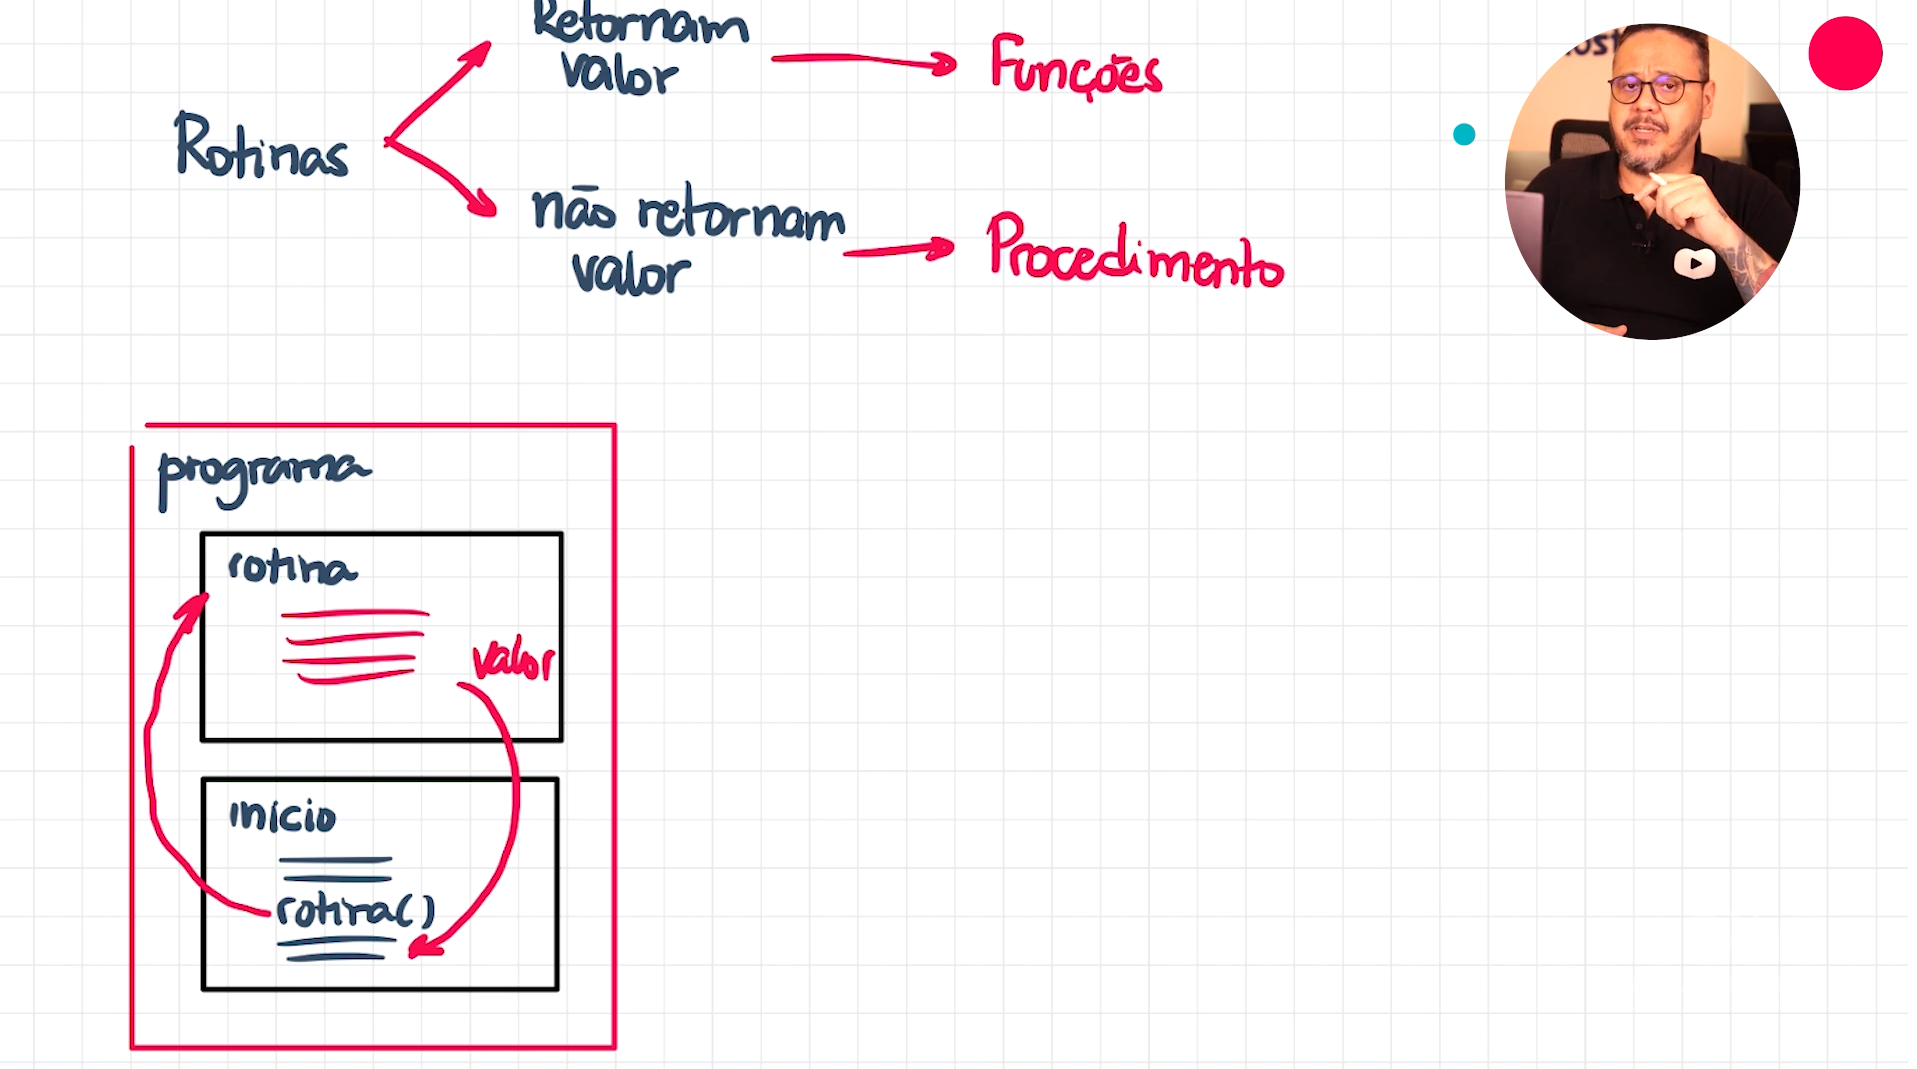 Retornam
valor
Funções
Rotinas
não retornam
valor
Procedimento
programa
rotina
valor
início
rotina()